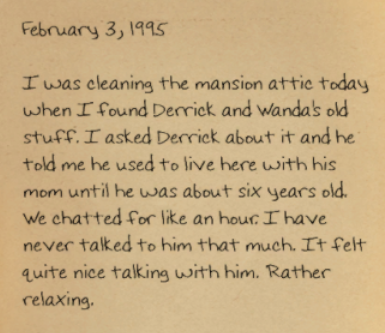 February 3, 1995
I was cleaning the mansion attic today
when I found Derrick and Wanda's old
stuff. I asked Derrick about it and he
told me he used to live here with his
mom until he was about six years old.
We chatted for like an hour. I have
never talked to him that much. It felt
quite nice talking with him. Rather
relaxing.